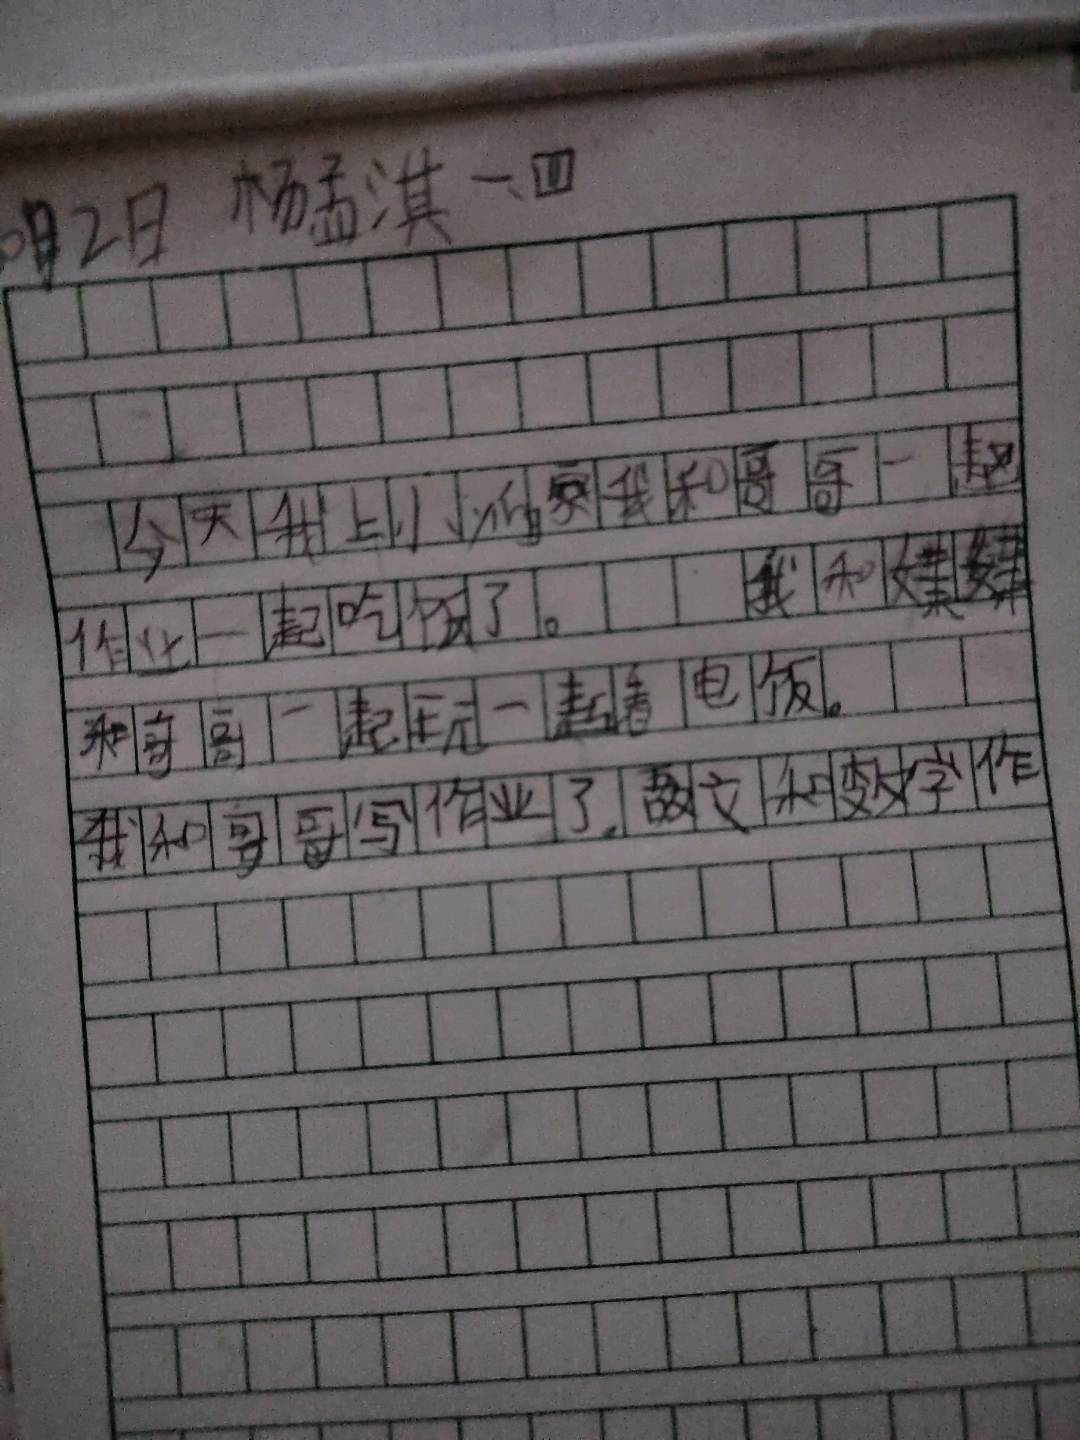 月2日 杨孟淇 一、四
今天我上小 家我和哥哥一起
作业一起吃饭了。 我和
和哥哥一起玩一起看电饭。
我和哥哥写作业了。 文和数字作